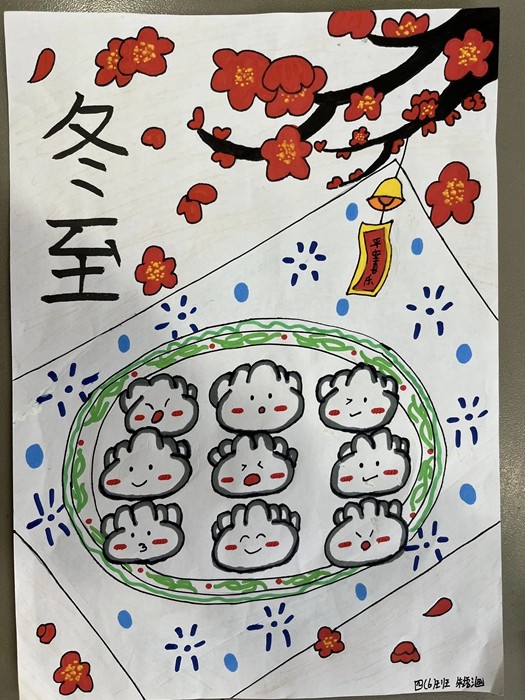 冬至
平安喜乐
四(6)班